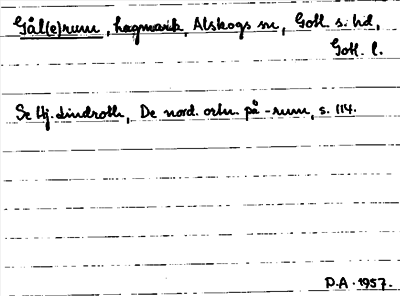 Gål(e)rum, hagmark, Alskogs sn, Gotl. s. hd,
Gotl. l.
Se Hj. Lindroth, De nord. ortn. på -rum, s. 114.
D.A. 1957.